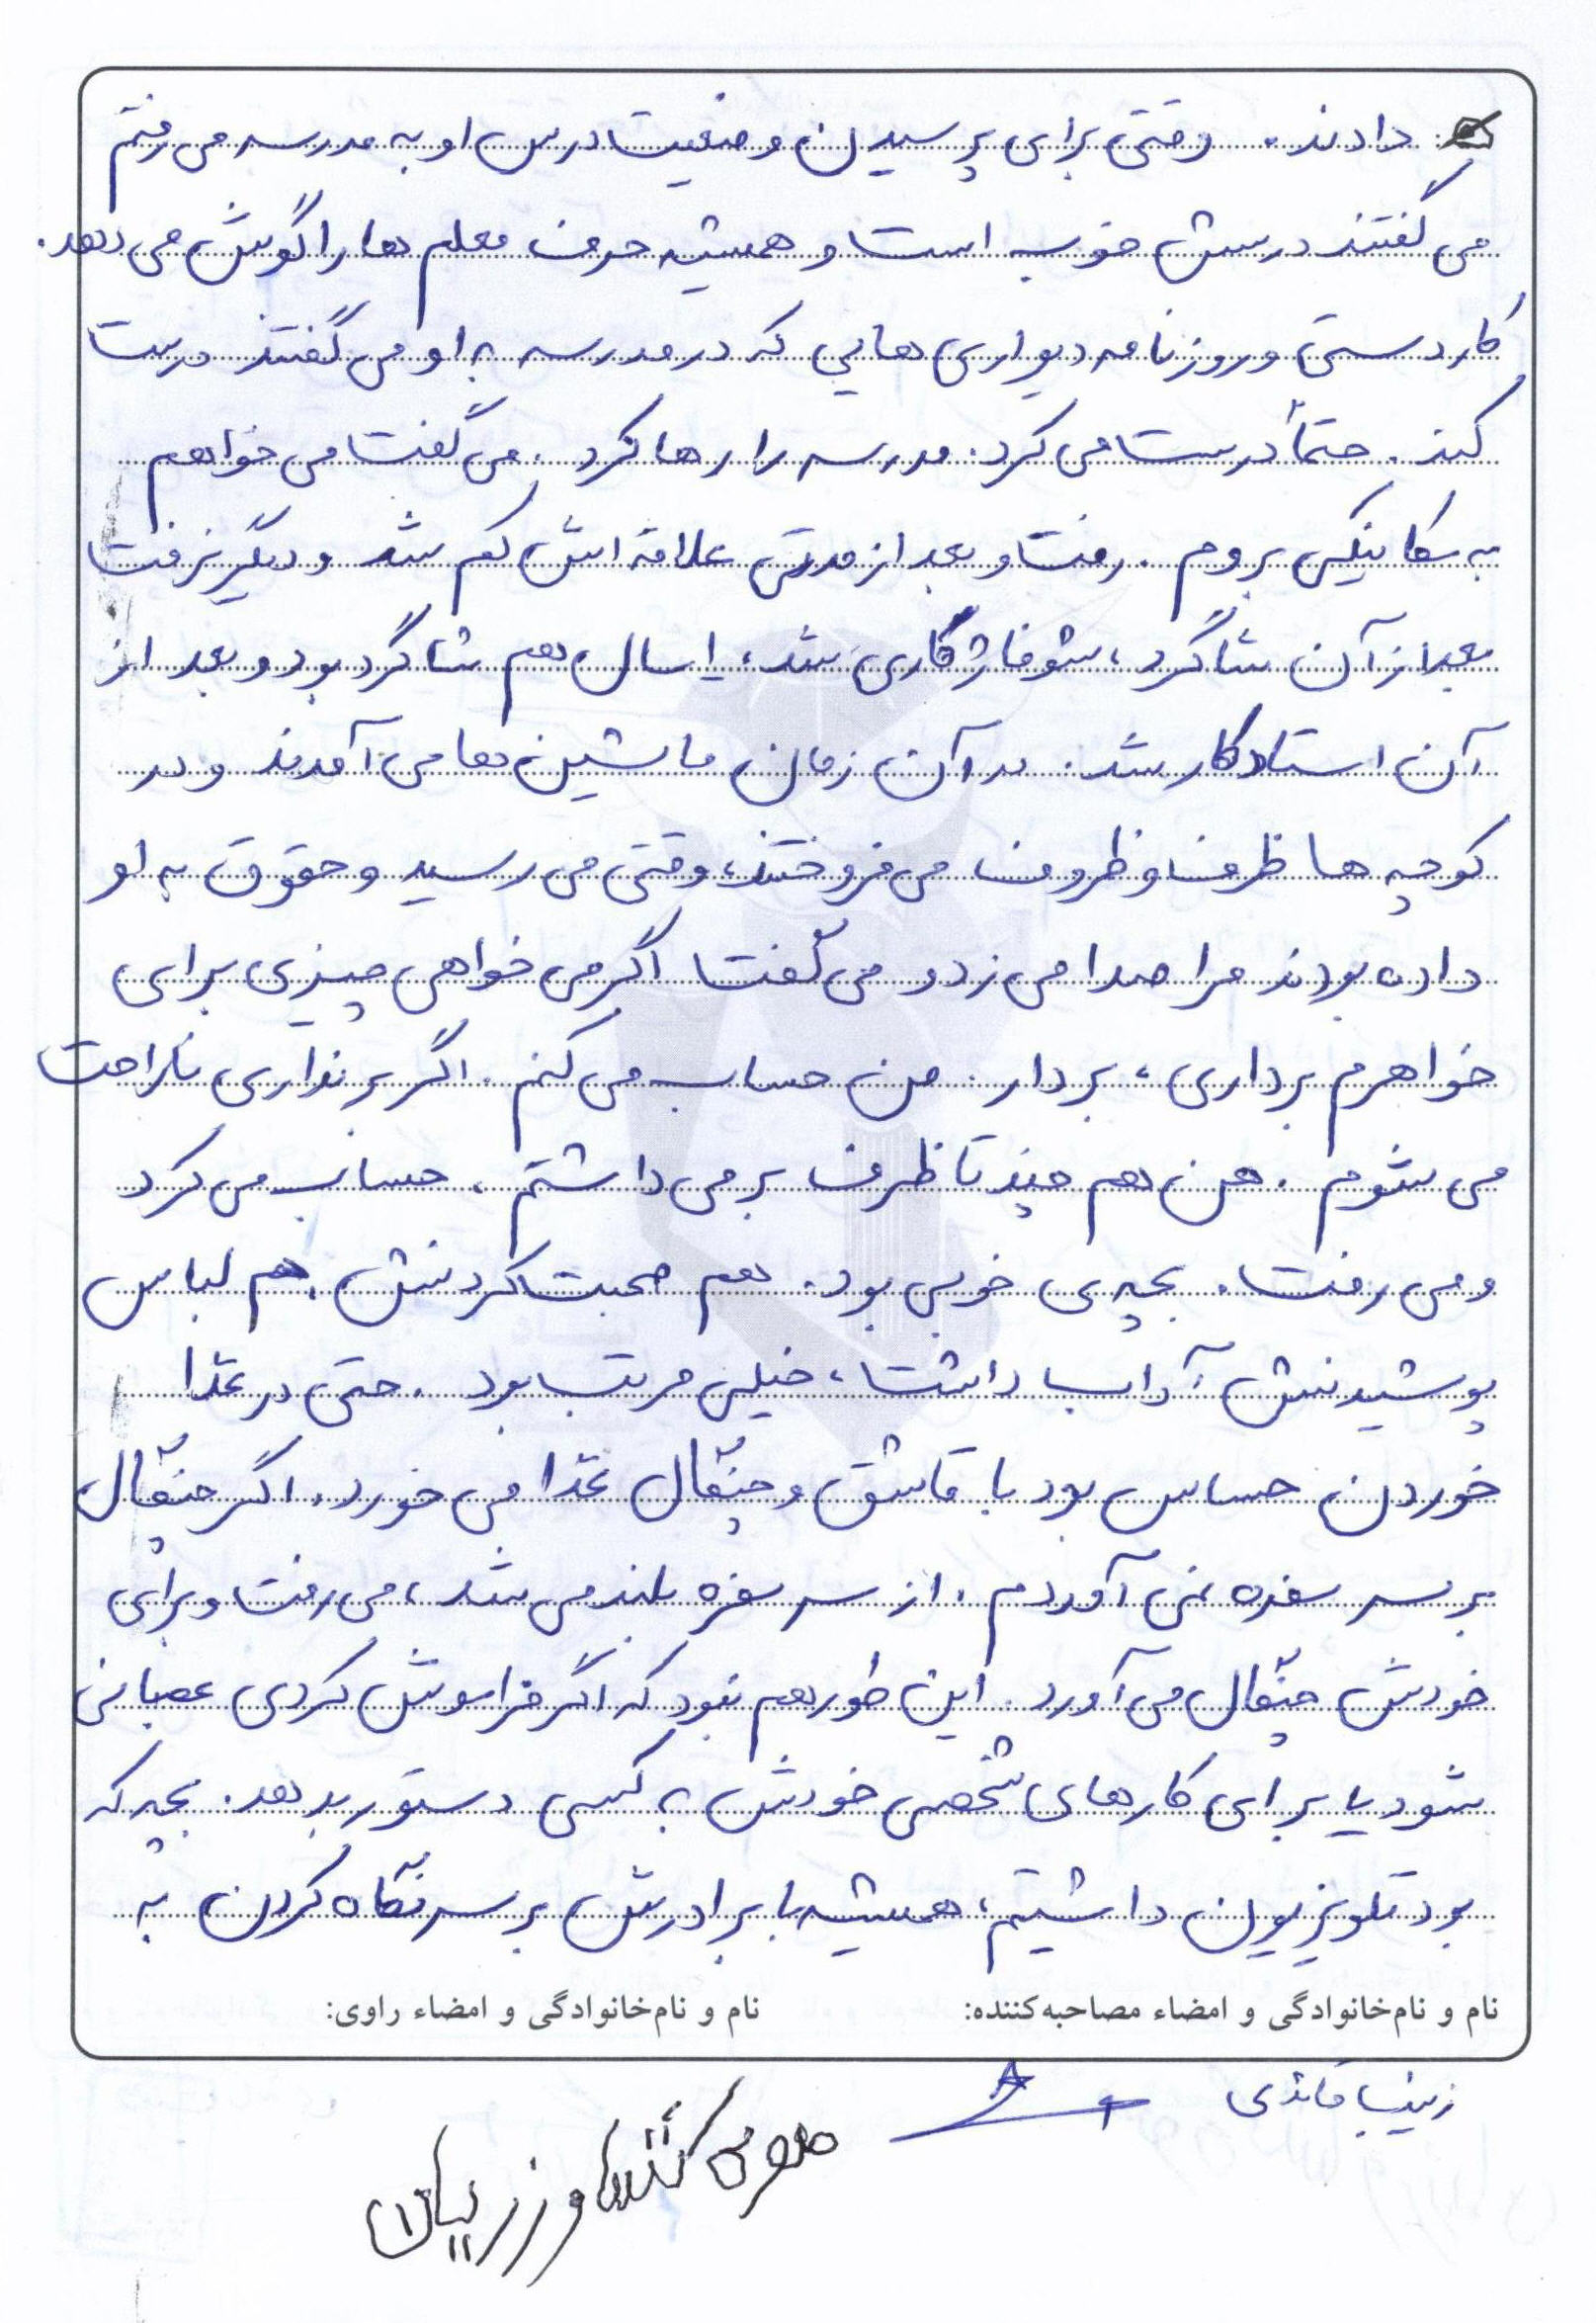 دادند. وقتی برای پرسیدن وضعیت درس او به مدرسه می رفتم
می گفتند درسش خوب است و همیشه حرف معلم ها را گوش می دهد.
کاردستی و روزنامه دیواری هایی که در مدرسه به او می گفتند درست
کند. حتماً درست می کرد. مدرسه را رها کرد. می گفت می خواهم
به مکانیکی بروم. رفت و بعد از مدتی علاقه اش کم شد و دیگر نرفت
بعد از آن شاگرد، شوفاژ کاری شد، ۱ سال هم شاگرد بود و بعد از
آن استاد کار شد. در آن زمان ماشین ها می آمدند و در
کوچه ها ظرف و ظروف می فروختند، وقتی می رسید و حقوق به او
داده بودند مرا صدا می زد و می گفت اگر می خواهی چیزی برای
خواهرم برداری، بردار. من حساب می کنم. اگر برنداری ناراحت
می شوم. من هم چند تا ظرف بر می داشتم. حساب می کرد
و می رفت. بچه ی خوبی بود. هم صحبت کردنش، هم لباس
پوشیدنش آداب داشت، خیلی مرتب بود. حتی در غذا
خوردن حساس بود با قاشق و چنگال غذا می خورد. اگر چنگال
بر سر سفره نمی آوردم. از سر سفره بلند می شد، می رفت و برای
خودش چنگال می آورد. این طور هم نبود که اگر فراموش کردی عصبانی
شود یا برای کارهای شخصی خودش به کسی دستور بدهد. بچه که
بود تلویزیون داشتیم، همیشه با برادرش بر سر نگاه کردن به
نام و نام‌خانوادگی و امضاء مصاحبه‌کننده: نام و نام‌خانوادگی و امضاء راوی:
زینب
کشاورزریان